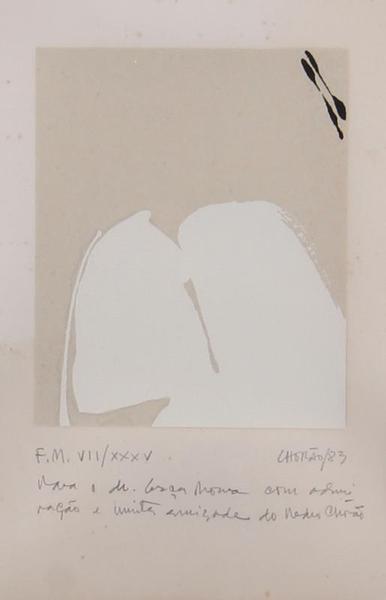 F.M. VII/XXXV
CHORÃO/83
Para o dr. Moura com admi
ração e muita amizade do Pedro Chorão